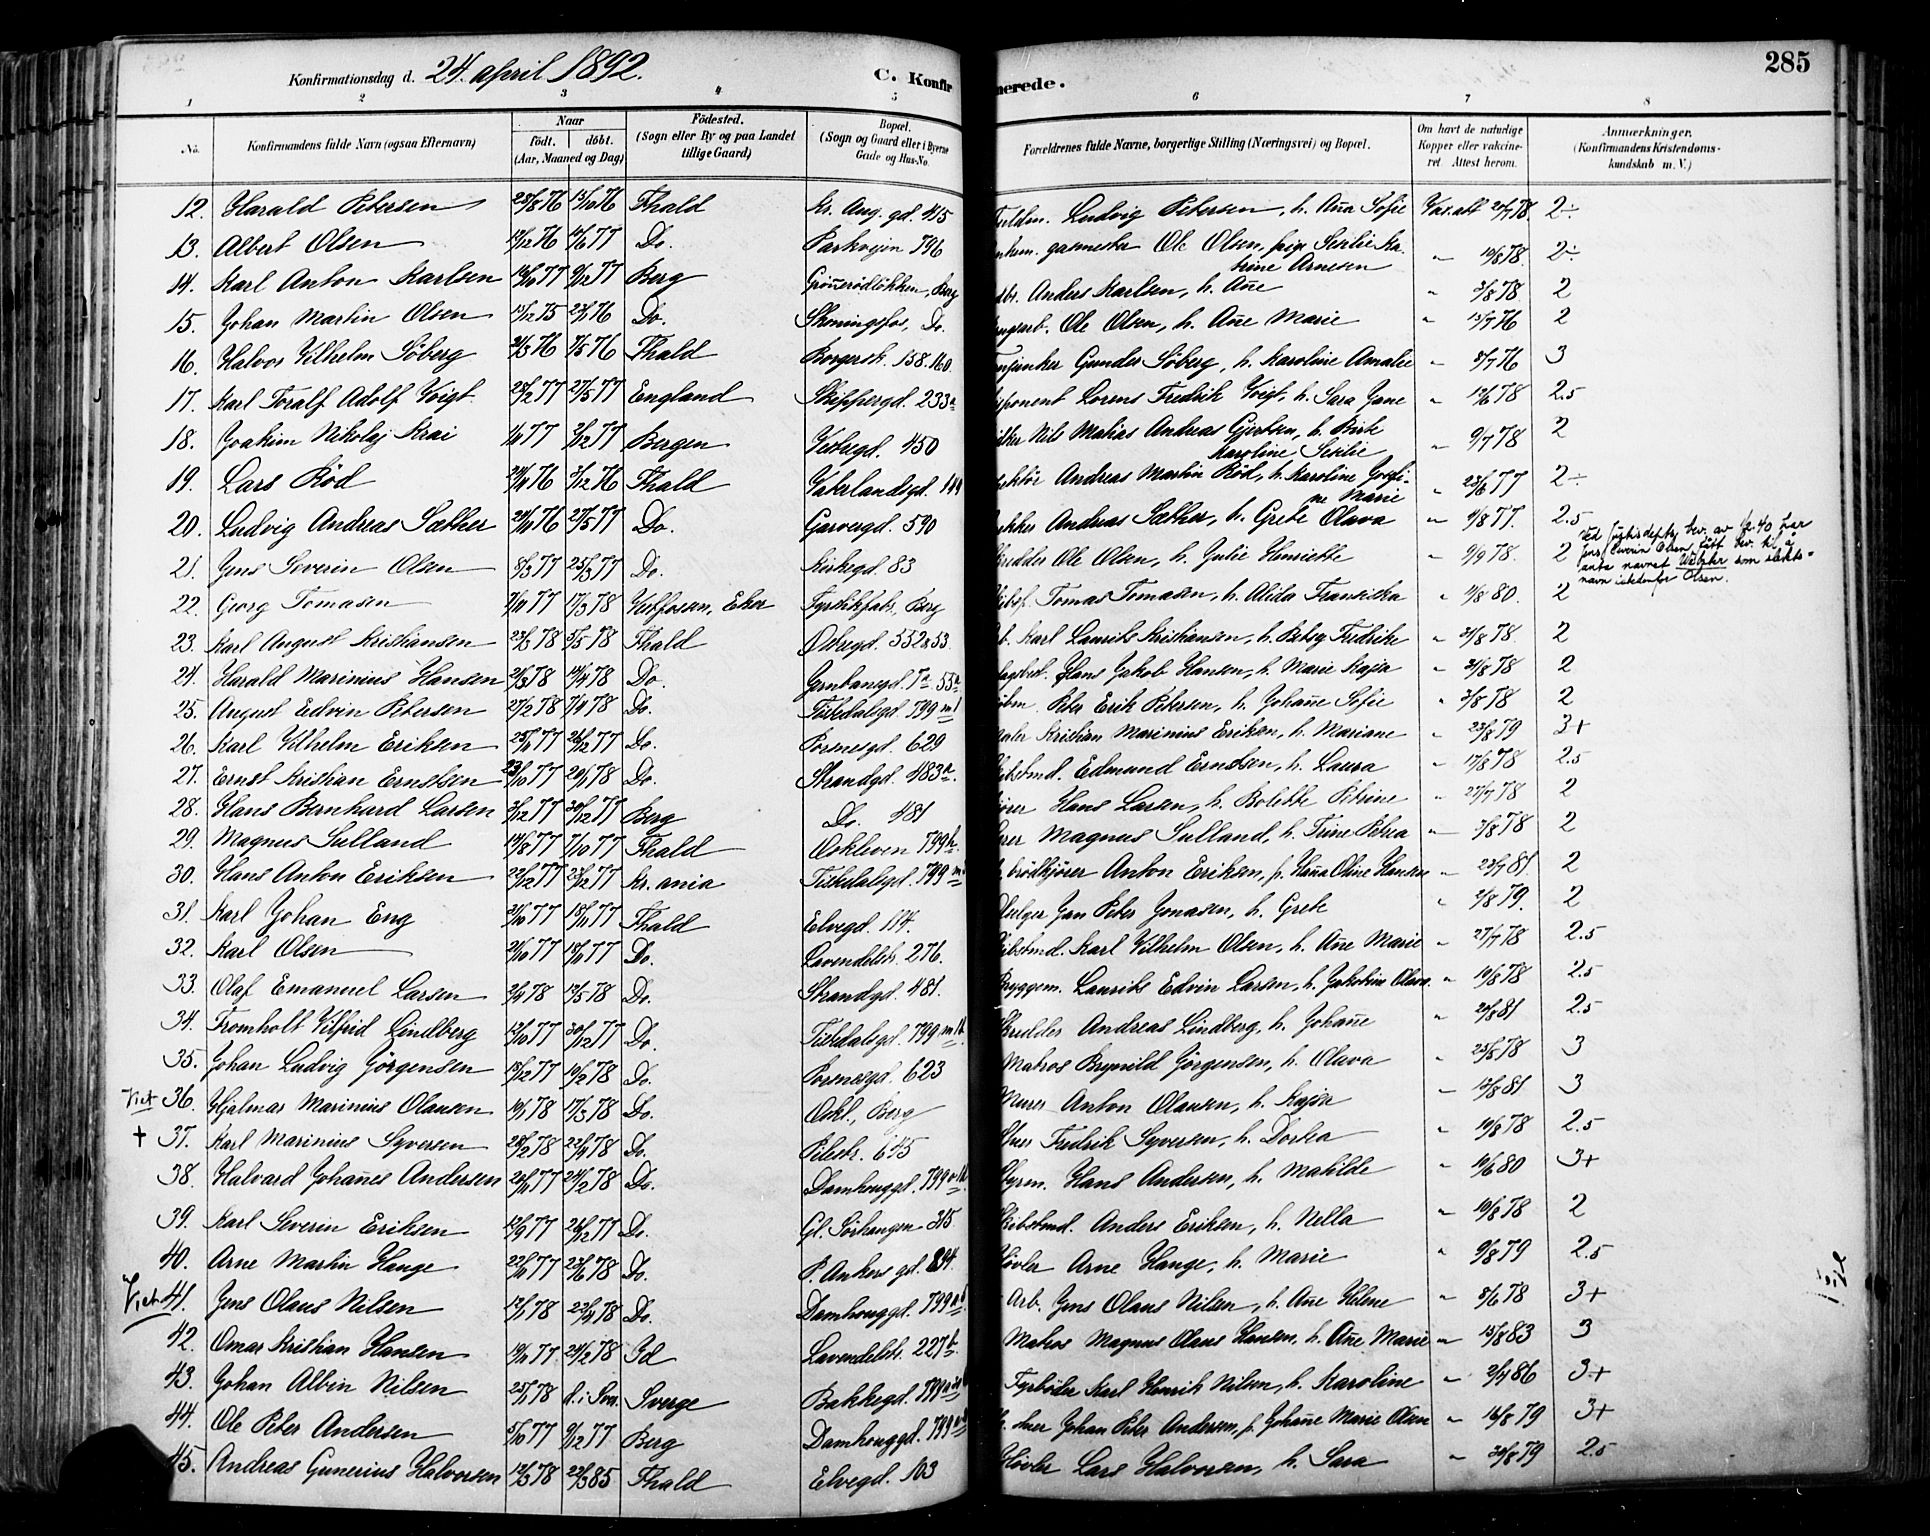 285
Konfirmationsdag d. 24. april 1892.
C. Konfir
merede.
1 2 3 4 5 6 7 8
No.
Konfirmandens fulde Navn (ogsaa Efternavn)
Naar
födt. döbt.
(Aar, Maaned og Dag)
Födested.
(Sogn eller By og paa Landet
tillige Gaard)
Bopæl.
(Sogn og Gaard eller i Byerne
Gade og Hus-No.
Forældrenes fulde Navne, borgerlige Stilling (Næringsvei) og Bopæl.
Om havt de naturlige
Kopper eller vakcine-
ret. Attest herom.
Anmærkninger.
(Konfirmandens Kristendoms-
kundskab m. V.)
12. Harald Petersen 28/8 76 15/10 76 Fhald Kr. Aug. gd. 415 Ludvig Petersen, h. Aña Sofie Vax. att 20/7 78 2÷
13. Albert Olsen 12/12 76 14/6 77 Do. Parkvejen 796 gasmester Ole Olsen, pige Sesilie Ka-
trine Arnesen " 10/8 78. 2÷
14. Karl Anton Karlsen 16/10 77 9/12 77 Berg Grönerödlökken, Berg Anders Karlsen, h. Añe " 3/8 78. 2
15. Johan Martin Olsen 14/12 75 23/1 76 Do. Skoningsfos, Do. Ole Olsen, h. Añe Marie " 15/7 76 2
16. Halvor Vilhelm Söberg 21/3 76 7/5 76 Fhald Borgersk. 158.160. Gunder Söberg, h. Karoline Amalie " 8/7 76 3
17. Karl Toralf Adolf Voigt 25/2 77 27/5 77 England Skippergd. 233a Lorens Fredrik Voigt, h. Sara Jane " 12/6 78 2.5
18. Joakim Nikolaj Krai 1/10 77 2/12 77 Bergen Vestregd. 450 Nils Matias Andreas Gjertsen, h. Birte
Karoline Sesilie " 9/7 78 2
19. Lars Röd 24/4 76 3/12 76 Fhald Vaterlandsgd. Andreas Martin Röd, h. Karoline Josefi-
ne Marie " 23/6 77 2÷
20. Ludvig Andreas Sæther 24/10 76 27/5 77 Do. Garvergd. 590 Andreas Sæther, h. Grete Olava " 4/8 77. 2.5
21. Jens Severin Olsen 8/3 77 25/3 77 Do. Kirkegd. 83 Ole Olsen, h. Julie Henriette " 9/9 78. 2
Jens Severin Olsen fått bev. til å
anta navnet som slekts-
navn istedenfor Olsen.
22. Georg Tomasen 7/11 77 17/3 78 Vestfossen, Eker Fyrstikfabr., Berg Tomas Tomasen, h. Alida Fransiska " 11/8 80. 2
23. Karl August Kristiansen 23/2 78 5/5 78 Fhald Ostregd. 552 & 53. Karl Laurits Kristiansen, h. Betsy Fredrike " 31/8 78. 2
24. Harald Marinius Hansen 21/3 78 14/4 78 Do. Hans Jakob Hansen, h. Marie Kajsa " 31/8 78 2
25. August Edvin Petersen 27/2 78 7/4 78 Do. Tistedalsgd. 799 Peter Erik Petersen, h. Johañe Sofie " 3/8 78 2
26. Karl Vilhelm Eriksen 25/11 77 26/12 77 Do. Porsnesgd. 629 Kristian Marinius Eriksen, h. Mariane " 23/8 79 3+
27. Ernst Kristian Erntsen 23/10 77 20/1 78 Do. Strandgd. 483a. Edmund Erntsen, h. Laura " 17/8 78 2.5
28. Hans Bernhard Larsen 3/12 77 30/12 77 Berg Do. 481 Hans Larsen, h. Bolette Petrine " 27/7 78 2
29. Magnus Sulland 14/8 77 7/10 77 Fhald Oskleven 799 Magnus Sulland, h. Trine Petrea " 3/8 78 2
30. Hans Anton Eriksen 22/12 77 Kr. ania Tistedalsgd. 799 brödkjörer Anton Eriksen, p. Hana Oline Hansen " 23/7 81. 2
31. Karl Johan Eng 21/10 77 18/11 77 Fhald Elvegd. 114. Jan Peter Jonasen, h. Grete " 2/8 79. 2
32. Karl Olsen 21/10 77 18/11 77 Do. Lavendelstr. 276. Karl Vilhelm Olsen, h. Añe Marie " 27/7 78 2.5
33. Olaf Emanuel Larsen 2/4 78 12/5 78 Do. Strandgd. 481. Bryggem. Laurits Edvin Larsen, h. Jakobine Olava. " 10/8 78 2.5
34. Fromholt Vilfrid Lindberg 12/10 77 30/12 77 Do. Tistedalsgd. 799 Andreas Lindberg, h. Johañe " 20/8 81 2.5
35. Johan Ludvig Jörgensen 15/12 77 10/2 78 Do. Porsnesgd. 623 Matros Brynild Jörgensen, h. Olava " 25/8 78 3
Viet 36. Hjalmar Marinius Olausen 14/1 78 17/3 78 Do. Oskl., Berg Murer Anton Olausen, h. Kajsa " 13/8 81 3
+ 37. Karl Marinius Syversen 28/2 78 22/4 78 Do. Pilestr. 645 Fredrik Syversen, h. Dortea " 10/8 78 2.5
38. Halvard Johañes Andersen 20/11 77 24/2 78 Do. Damhauggd. 799 Styrm. Hans Andersen, h. Matilde " 10/6 80 3+
39. Karl Severin Eriksen 12/9 77 26/12 77 Do. Gl. Sörhaugen 315 Anders Eriksen, h. Nella " 10/8 78 2
40. Arne Martin Hauge 22/11 77 23/6 78 Do. P. Ankers gd. 894. Hövler Arne Hauge, h. Marie " 9/8 79 2.5
Viet 41. Jens Olaus Nilsen 12/1 78 22/4 78 Do. Damhauggd. 799 Arb. Jens Olaus Nilsen, h. Añe Helene " 8/6 78 3+
42. Omar Kristian Hansen 14/11 77 24/2 78 Id Lavendelstr. 227b. Matros Magnus Olaus Hansen, h. Añe Marie " 15/8 83 3
43. Johan Albin Nilsen 25/1 78 d. i Sve. Sverge Bakkegd. 799 Fyrböder Karl Henrik Nilsen, h. Karoline " 2/4 86 3+
44. Ole Peter Andersen 5/10 77 9/12 77 Berg Damhauggd. 799 Johan Peter Andersen, p. Johañe Marie Olsen " 16/8 79 3+
45. Andreas Gunerius Halvorsen 12/3 78 22/3 85 Fhald Elvegd. 103 Hövler Lars Halvorsen, h. Sara " 30/8 79 2.5